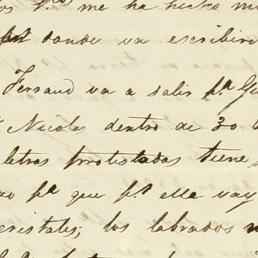 me ha hecho
donde va escribir
Ferraud va a salir pª
Nicolas dentro de 30
letras protestadas tiene
pª que pª ella vay
cristales; los labrados